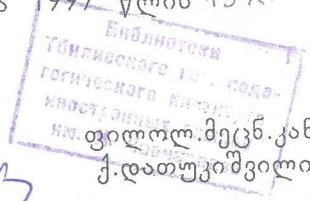 1997 წლის 15
Библиотека
Тбилисского гос. педа-
гогического института
иностранных
им.
ფილოლ.მეცნ.კან
ქ.დათუკიშვილი